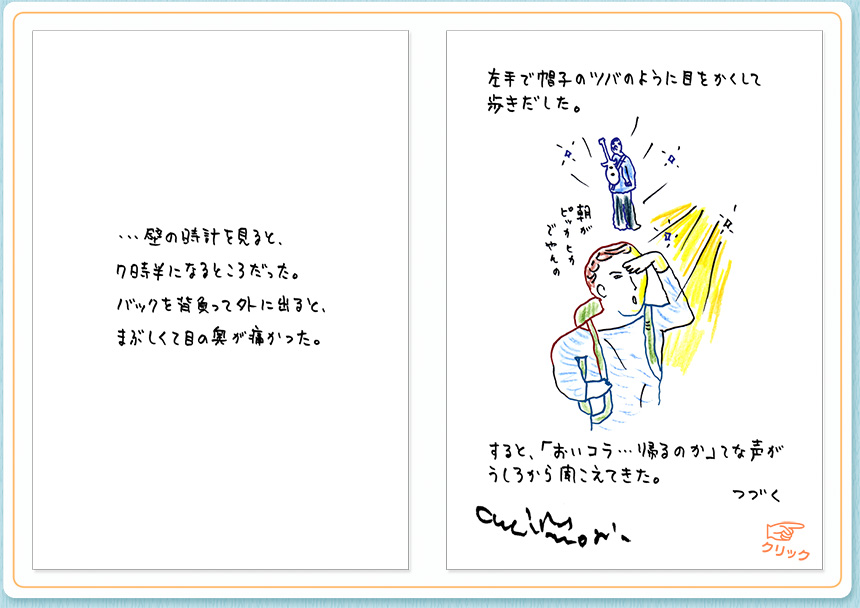 …壁の時計を見ると、
7時半になるところだった。
バックを背負って外に出ると、
まぶしくて目の奥が痛かった。
左手で帽子のツバのように目をかくして
歩きだした。
朝が
ピッカピカ
でやんの
すると、「おいコラ…帰るのか」てな声が
うしろから聞こえてきた。
つづく
クリック